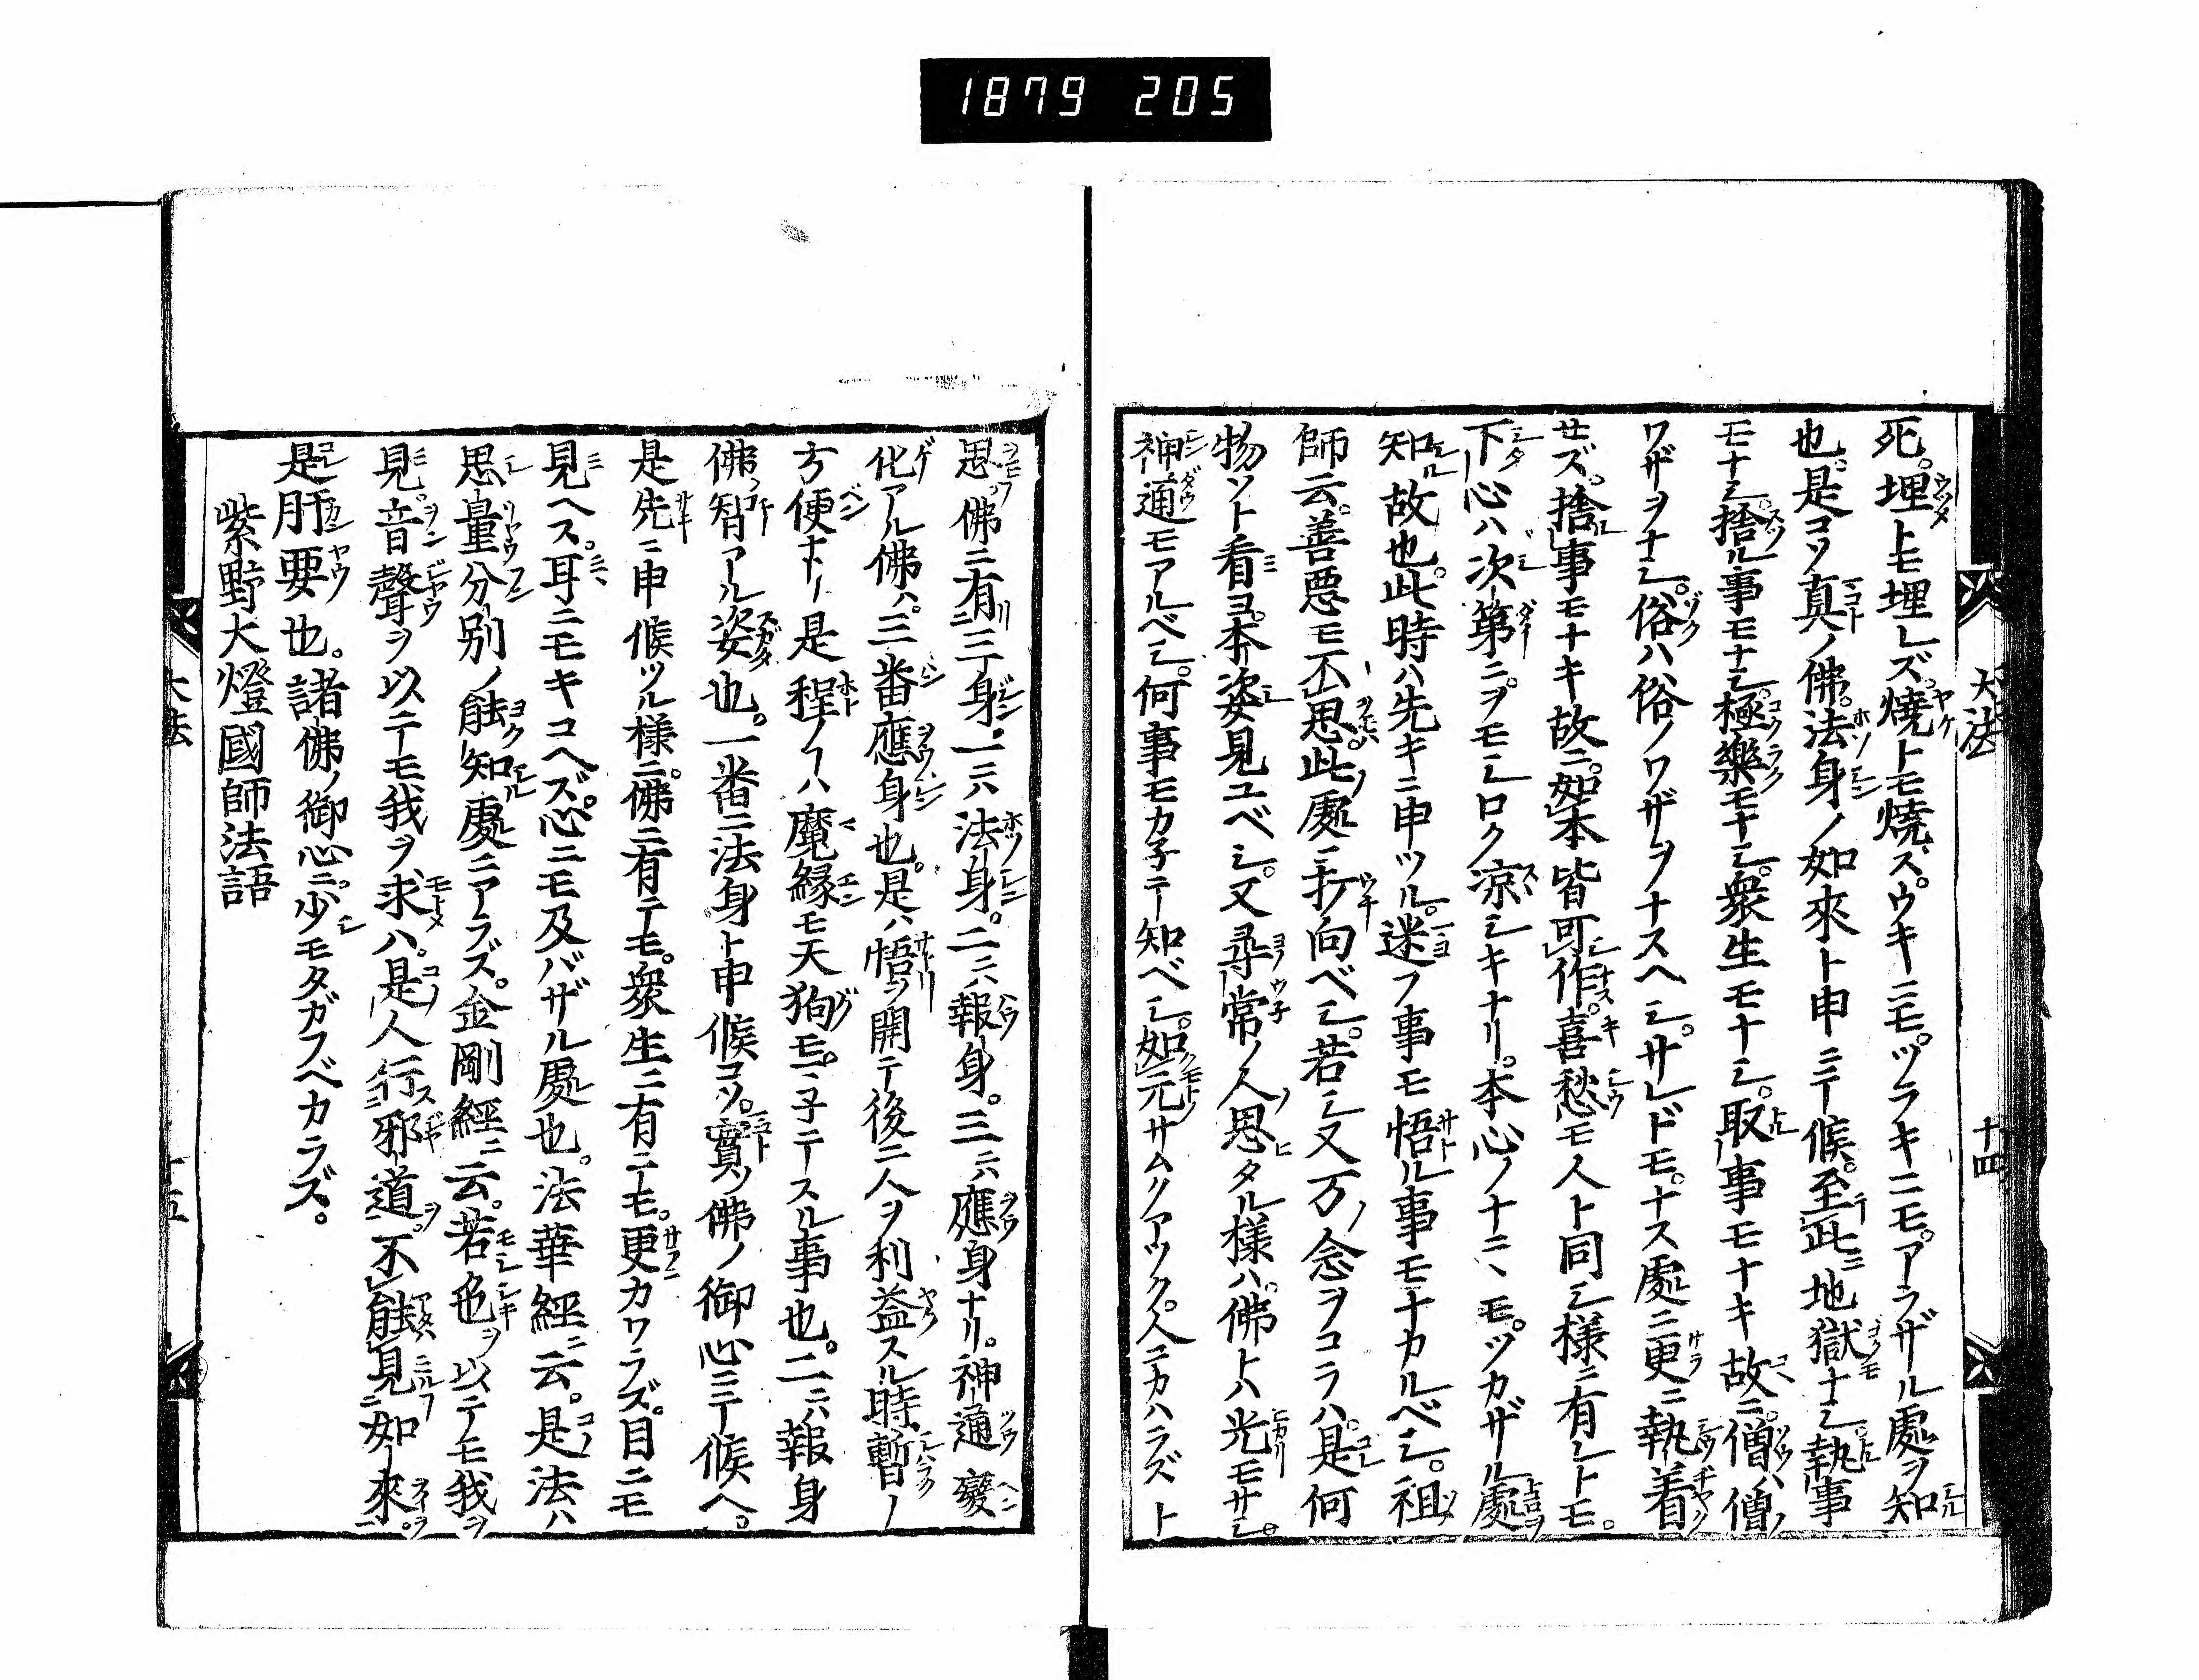 1879 205
大法
十四
死。埋トモ埋レズ。燒トモ燒ス。ウキニモ。ツラキニモ。アラザル處ヲ知
也。是コソ真ノ佛。法身ノ如來ト申ニテ候。至此地獄ナシ。執事
モナシ。捨ル事モナシ。極樂モナシ。衆生モナシ。取事モナキ故ニ。僧ハ僧ノ
ワザヲナシ。俗ハ俗ノワザヲナスヘシ。サレドモ。ナス處ニ更ニ執着
セズ。捨事モナキ故ニ。如本皆可作。喜愁モ人ト同シ様ニ有レトモ。
下心ハ次第ニ。ヲモシロク凉シキナリ。本心ノナニヽモ。ツカザル處
知故也。此時ハ先キニ申ツル。迷フ事モ悟ル事モナカルベシ。祖
師云。善惡モ不思。此處ニ打向ベシ。若シ又万ノ念ヲコラハ。是何
物ソト看ヨ。本姿見ユベシ。又尋常ノ人思タル様ハ。佛トハ光モサシ。
神通モアルベシ。何事モカ子テ知ベシ。如元サムクアツク。人ニカハラズト
思。佛ニ有三身。一ニハ法身。二ニハ報身。三ニハ應身ナリ。神通變
化アル佛ハ。三番應身也。是ハ悟ヲ開テ後ニ人ヲ利益スル時。暫ノ
方便ナリ是程ノ事ハ魔縁モ天狗モ。マ子テスル事也。二ニハ報身
佛智アル姿也。一番ニ法身ト申候コソ。實ノ佛ノ御心ニテ候ヘ。
是先ニ申候ツル様ニ。佛ニ有テモ。衆生ニ有テモ。更カワラズ。目ニモ
見ヘス。耳ニモキコヘズ。心ニモ及バザル處也。法華經ニ云。是法ハ
思量分別ノ能知處ニアラズ。金剛經ニ云。若色ヲ以テモ我ヲ
見。音聲ヲ以テモ我ヲ求ハ。是人行邪道。不能見如來
是肝要也。諸佛ノ御心ニ。少モタガフベカラズ。
紫野大燈國師法語
大法
十五